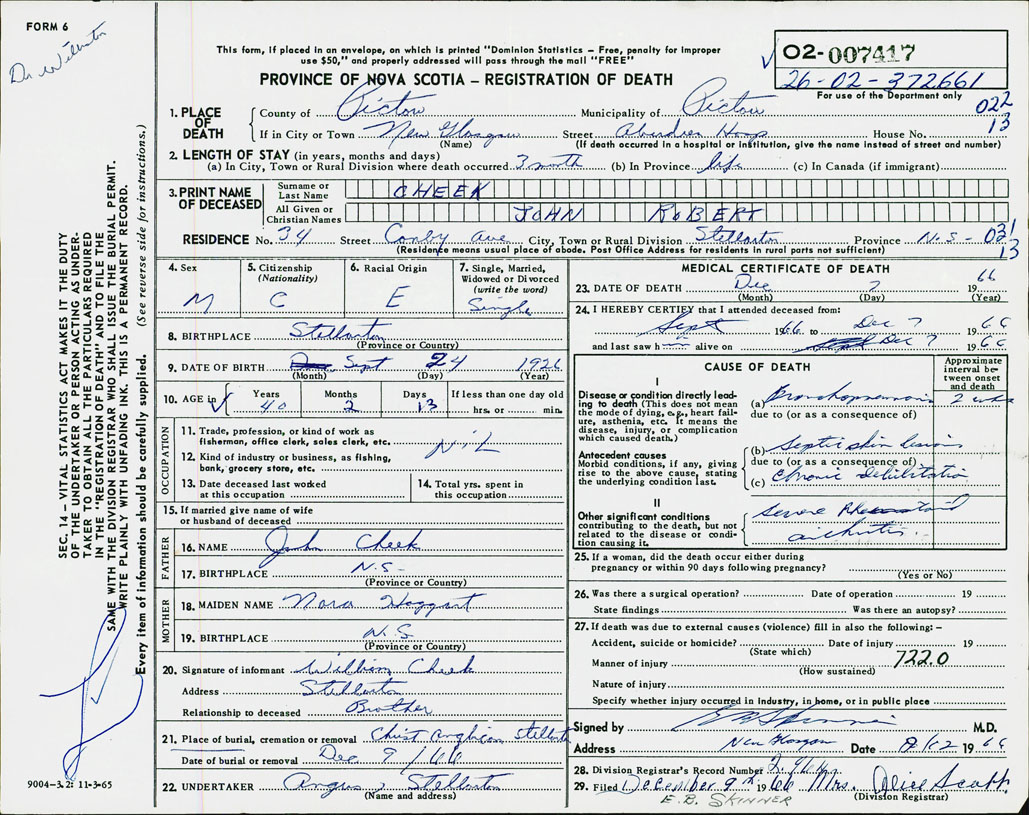 FORM 6
Dr. Wilerton
This form, if placed in an envelope, on which is printed "Dominion Statistics – Free, penalty for improper
use $50," and properly addressed will pass through the mail "FREE"
PROVINCE OF NOVA SCOTIA – REGISTRATION OF DEATH
O2-007417
26-02-372661
For use of the Department only
022
13
1. PLACE OF DEATH
County of Pictou Municipality of Pictou
If in City or Town New Glasgow Street Aberdeen Hosp House No.
(Name) (If death occurred in a hospital or institution, give the name instead of street and number)
2. LENGTH OF STAY (in years, months and days)
(a) In City, Town or Rural Division where death occurred 3 month (b) In Province life (c) In Canada (if immigrant)
3. PRINT NAME OF DECEASED
Surname or Last Name CHEEK
All Given or Christian Names JOHN ROBERT
RESIDENCE No. 34 Street Conby Ave City, Town or Rural Division Stellarton Province N.S- 031
13
(Residence means usual place of abode. Post Office Address for residents in rural parts not sufficient)
4. Sex
M
5. Citizenship
(Nationality)
C
6. Racial Origin
E
7. Single, Married,
Widowed or Divorced
(write the word)
Single
8. BIRTHPLACE Stellarton
(Province or Country)
9. DATE OF BIRTH Sept 24 1926
(Month) (Day) (Year)
10. AGE in Years Months Days If less than one day old
40 2 13 hrs. or min.
OCCUPATION
11. Trade, profession, or kind of work as
fisherman, office clerk, sales clerk, etc. NiL
12. Kind of industry or business, as fishing,
bank, grocery store, etc.
13. Date deceased last worked
at this occupation
14. Total yrs. spent in
this occupation
15. If married give name of wife
or husband of deceased
FATHER
16. NAME John Cheek
17. BIRTHPLACE N.S-
(Province or Country)
MOTHER
18. MAIDEN NAME Nora Haggart
19. BIRTHPLACE N.S
(Province or Country)
20. Signature of informant William Cheek
Address Stellarton
Relationship to deceased Brother
21. Place of burial, cremation or removal Christ Anglican Stellarton
Date of burial or removal Dec 9/66
22. UNDERTAKER Angus, Stellarton
(Name and address)
MEDICAL CERTIFICATE OF DEATH
23. DATE OF DEATH Dec 7 19 66
(Month) (Day) (Year)
24. I HEREBY CERTIFY that I attended deceased from:
Sept 1966 to Dec 7 1966
and last saw h im alive on Dec 7 1966
CAUSE OF DEATH
Approximate
interval be-
tween onset
and death
I
Disease or condition directly lead-
ing to death (This does not mean
the mode of dying, e.g., heart fail-
ure, asthenia, etc. It means the
disease, injury, or complication
which caused death.)
(a) Bronchopneumonia 2 wks
due to (or as a consequence of)
Antecedent causes
Morbid conditions, if any, giving
rise to the above cause, stating
the underlying condition last.
(b) Septic skin lesions
due to (or as a consequence of)
(c) Chronic debilitation
II
Other significant conditions
contributing to the death, but not
related to the disease or condi-
tion causing it.
Severe Rheumatoid
arthritis
25. If a woman, did the death occur either during
pregnancy or within 90 days following pregnancy?
(Yes or No)
26. Was there a surgical operation? Date of operation 19
State findings Was there an autopsy?
27. If death was due to external causes (violence) fill in also the following: –
Accident, suicide or homicide? Date of injury 19
(State which)
Manner of injury 722.0
(How sustained)
Nature of injury
Specify whether injury occurred in industry, in home, or in public place
Signed by E B Skinner M.D.
Address New Glasgow Date 8/12 1966
28. Division Registrar's Record Number
29. Filed December 9th 1966 Mrs. Alice Scott
(Division Registrar)
E.B. SKINNER
SEC. 14 – VITAL STATISTICS ACT MAKES IT THE DUTY
OF THE UNDERTAKER OR PERSON ACTING AS UNDER-
TAKER TO OBTAIN ALL THE PARTICULARS REQUIRED
IN THE "REGISTRATION OF DEATH" AND TO FILE THE
SAME WITH THE DIVISION REGISTRAR WHO SHALL ISSUE THE BURIAL PERMIT.
WRITE PLAINLY WITH UNFADING INK. THIS IS A PERMANENT RECORD.
Every item of information should be carefully supplied. (See reverse side for instructions.)
9004-3.2: 11-3-65